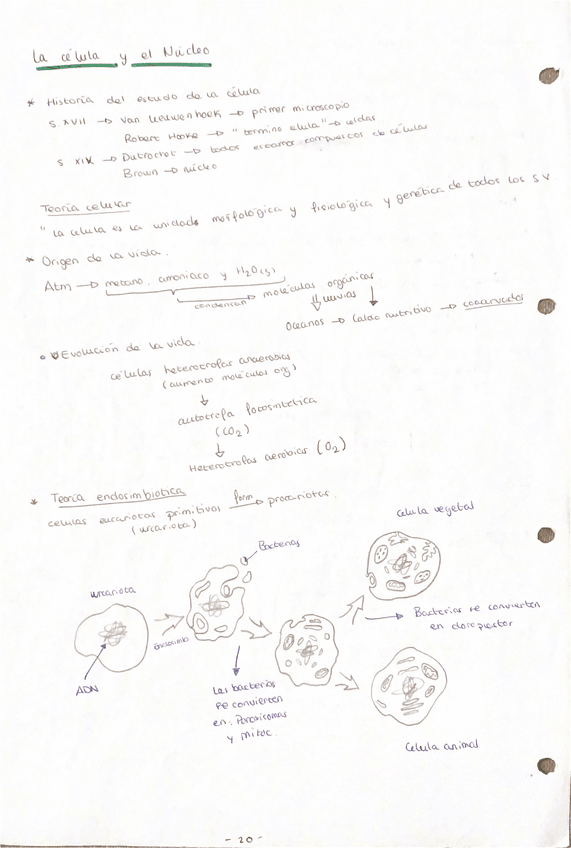 La célula y el Núcleo
* Historia del estudio de la célula
s. XVII → Van Leeuwenhoek → primer microscopio
Robert Hooke → "termino elula" → celdas
s XIX → Dutrochet → todos estamos compuestos de células
Brown → núcleo
Teoría celular
"La célula es la unidad morfológica y fisiológica y genética de todos los s v
* Origen de la vida.
Atm → metano, amoniaco y H2O(g)
condensan → moléculas orgánicas
⇓ lluvias ↓
Oceanos → Caldo nutritivo → coacervados
Evolución de la vida.
células heterotrofas anaerobias
(aumento moléculas org)
↓
autotrofa fotosintetica
(CO2)
↓
Heterotrofas aerobias (O2)
* Teoría endosimbiotica
celulas eucariotas primitivas form → procariotas.
(urcariota)
celula vegetal
Bacterias
urcariota
Endosimb
Bacterias se convierten
en cloroplastos
ADN
Las bacterias
se convierten
en: Peroxisomas
y mitoc.
Celula animal
- 20 -